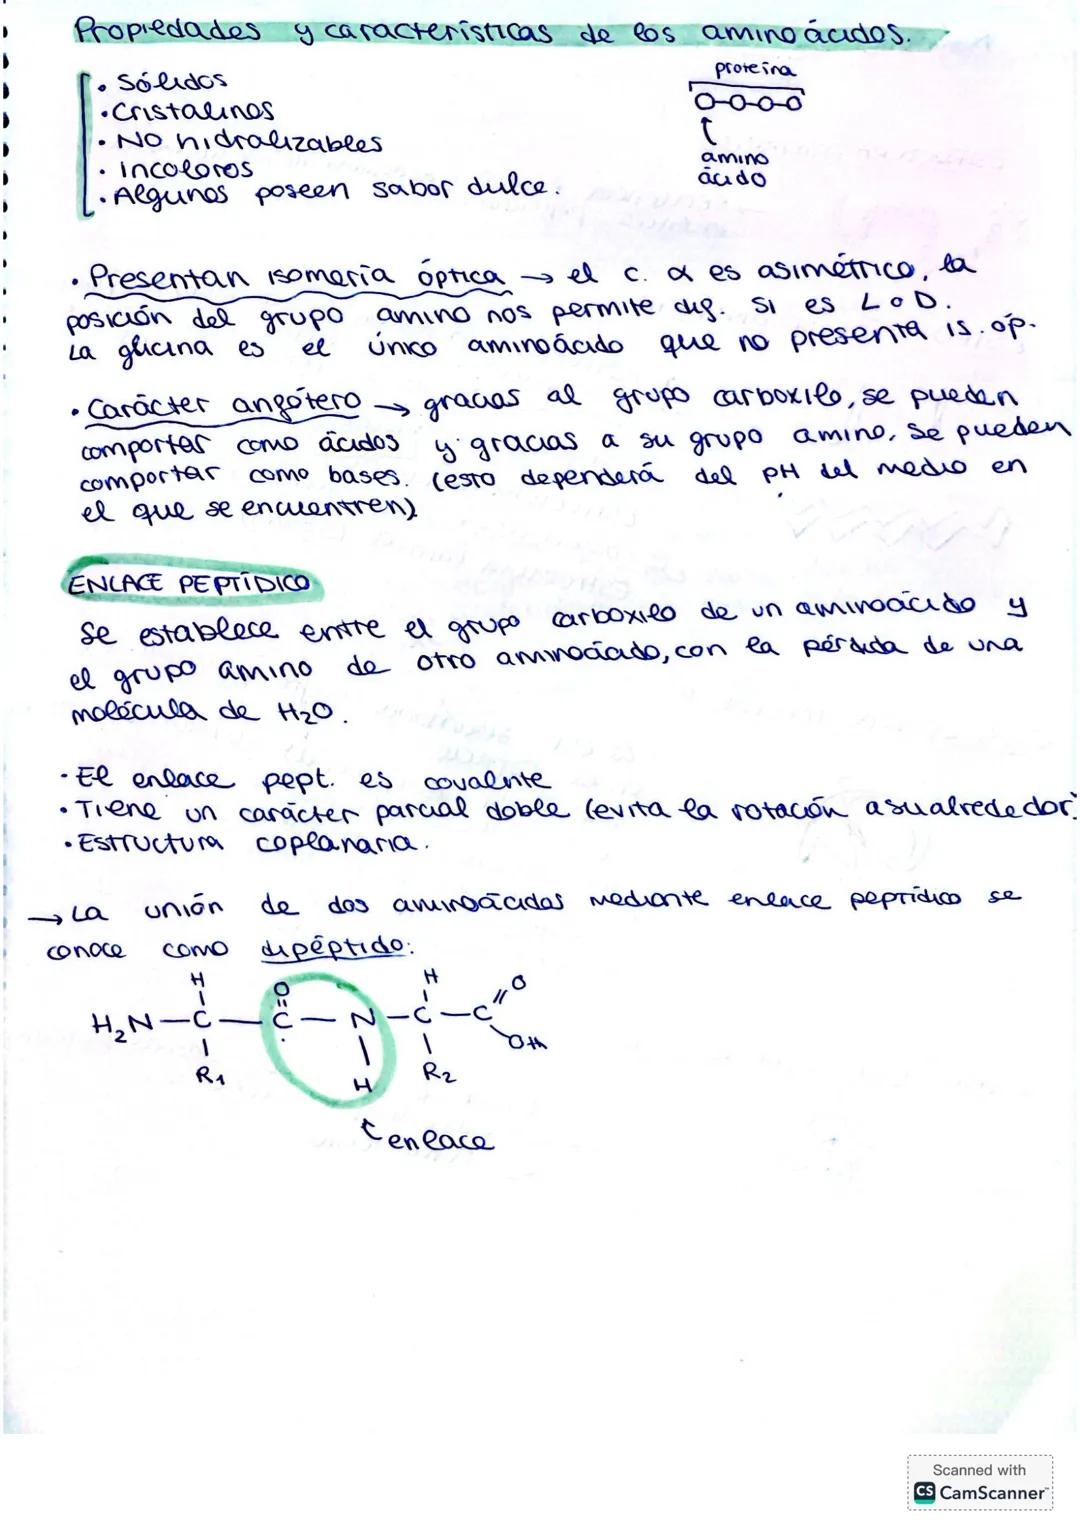 Propiedades y características de los aminoácidos.
proteína
amino
ácido
• Sólidos
• Cristalinos
• NO hidralizables
• incoloros
• Algunos poseen sabor dulce.
• Presentan isomería óptica → el c. α es asimétrico, la
posición del grupo amino nos permite dig. si es L o D.
La glicina es el único aminoácido que no presenta is. óp.
• Carácter angótero → gracias al grupo carboxilo, se pueden
comportar como ácidos y gracias a su grupo amino, se pueden
comportar como bases. (esto dependerá del pH del medio en
el que se encuentren)
ENLACE PEPTÍDICO
Se establece entre el grupo carboxilo de un aminoácido y
el grupo amino de otro aminoácido, con la pérdida de una
molécula de H₂O.
• El enlace pept. es covalnte
• Tiene un carácter parcial doble (evita la rotación a su alrededor)
• Estructura coplanaria.
→ La unión de dos aminoácidos mediante enlace peptídico se
conoce como dipéptido:
H O H O
H₂N — C — C — N — C — C
OH
R₁ H R₂
enlace
Scanned with
CS CamScanner